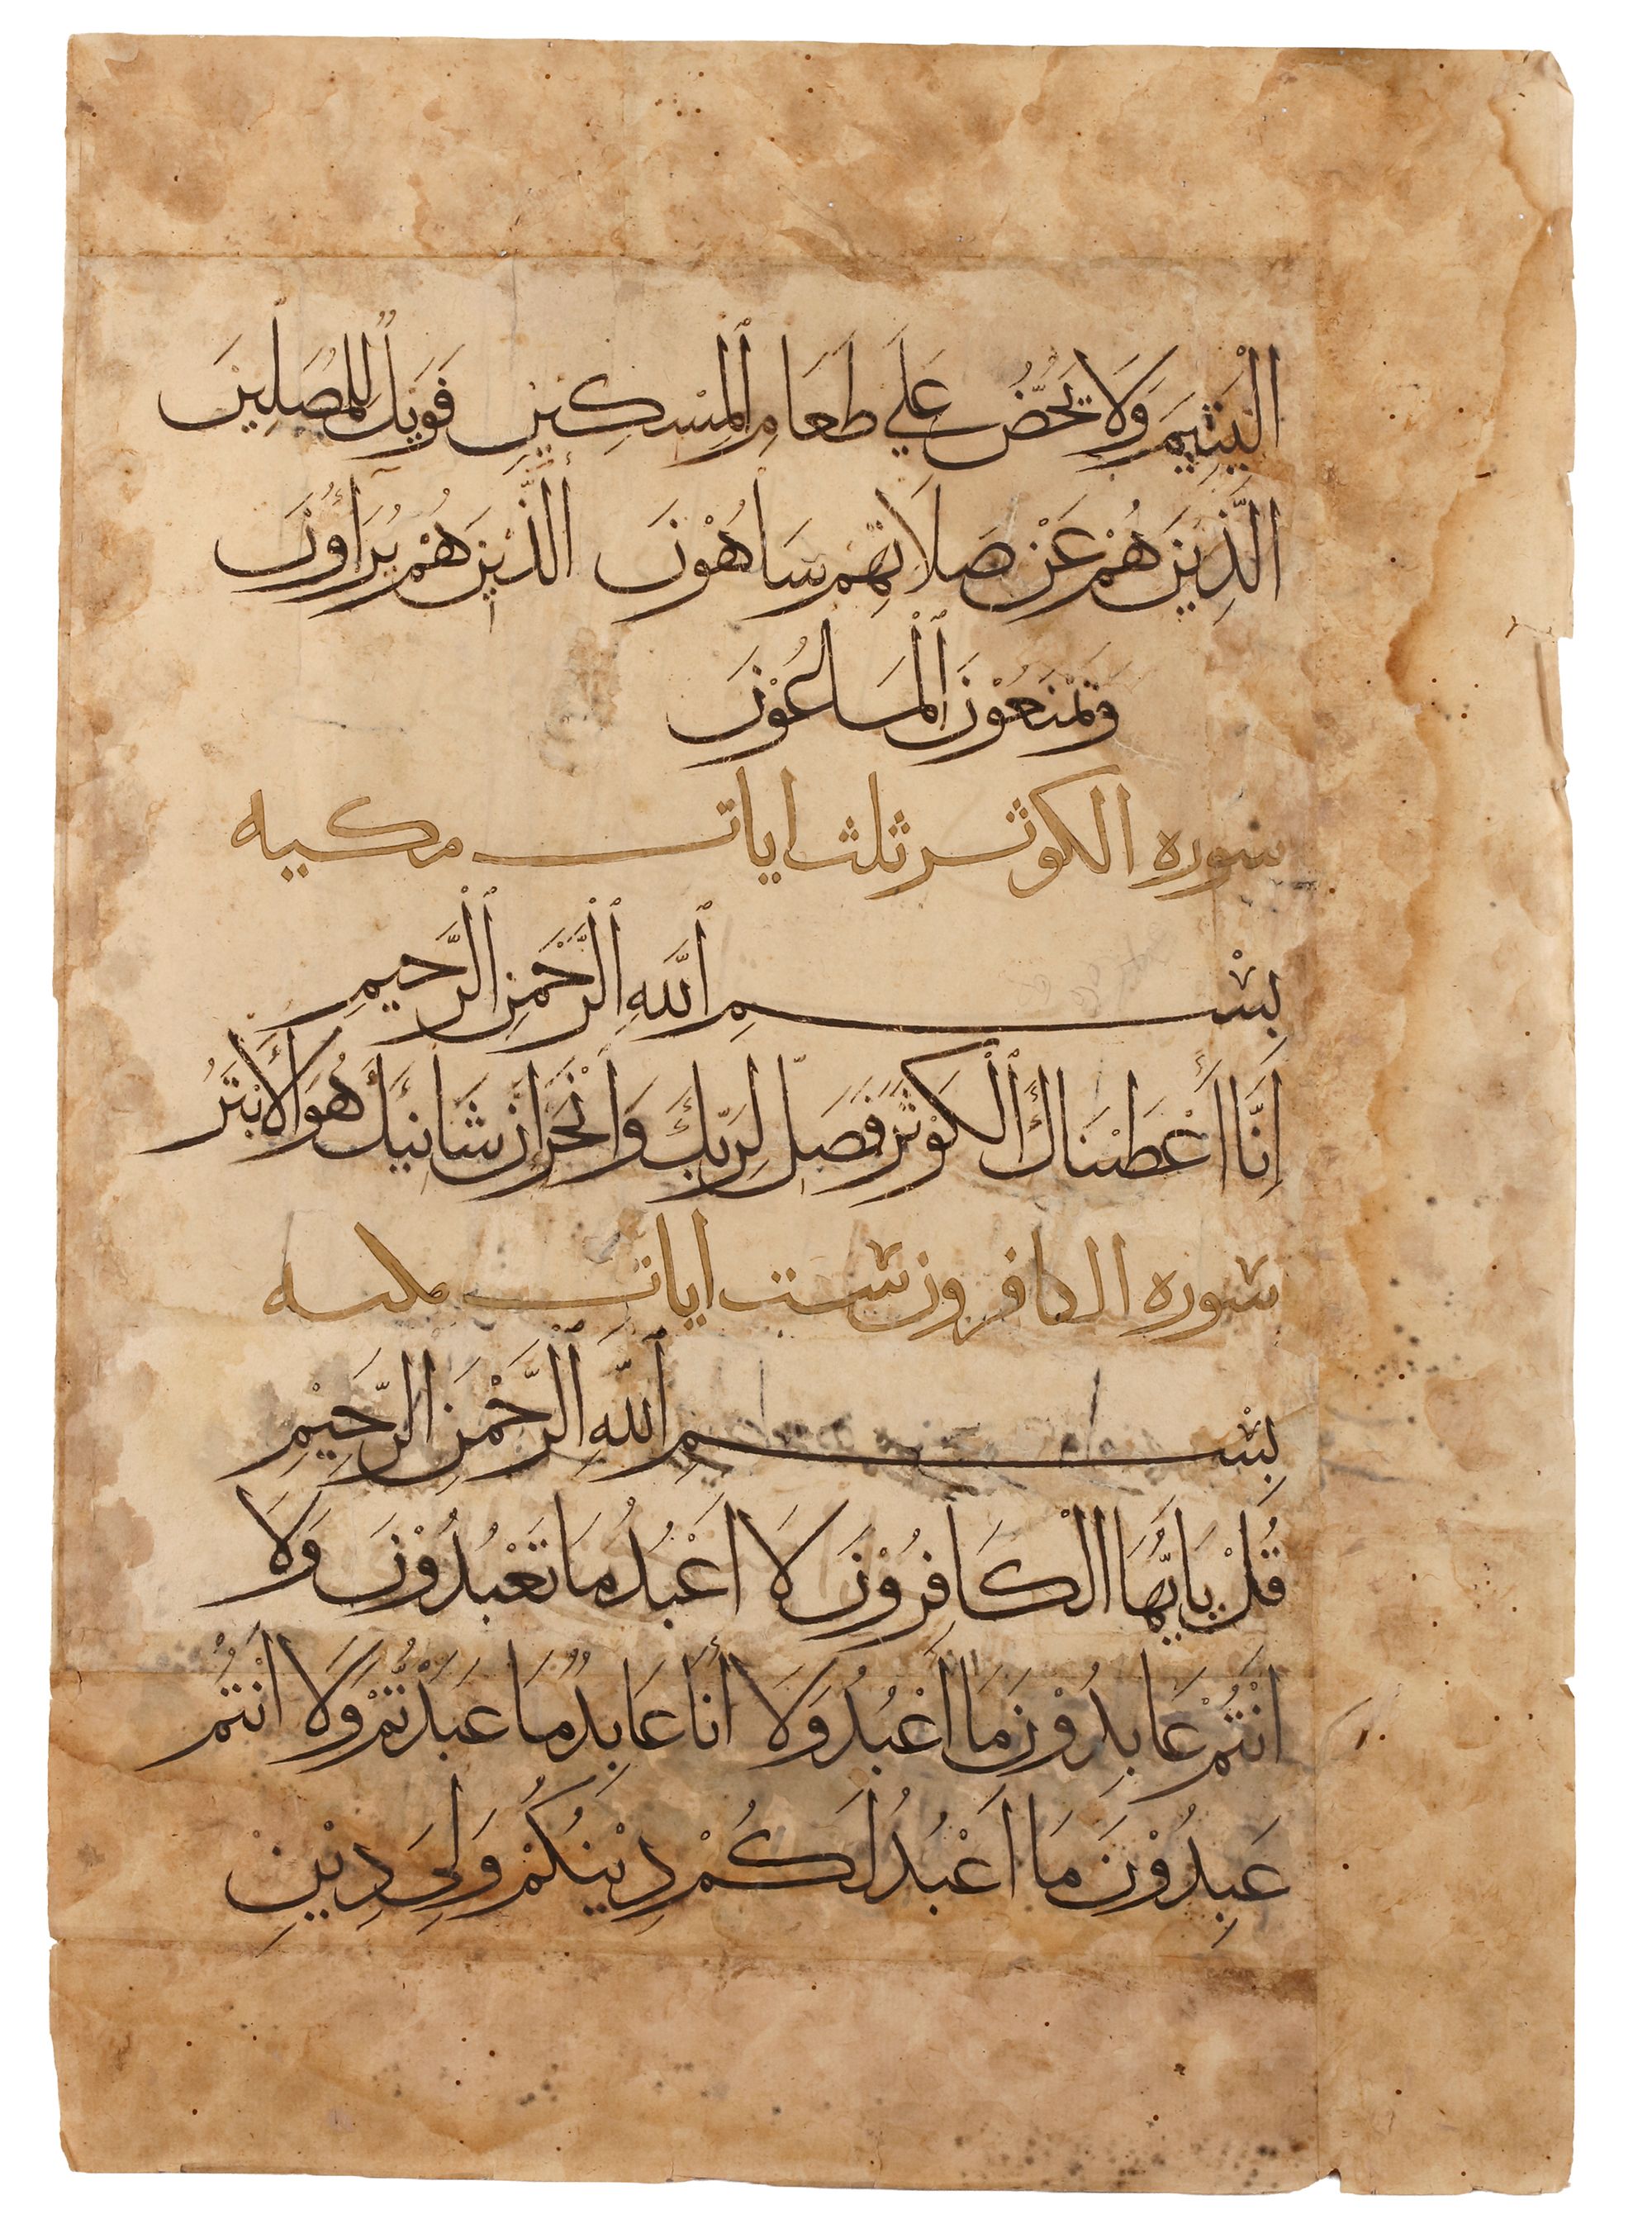 الْيَتِيمَ وَلَا يَحُضُّ عَلَي طَعَامِ الْمِسْكِيْنِ فَوَيْلٌ لِلْمُصَلِّينَ
الَّذِيْنَ هُمْ عَنْ صَلَاتِهِمْ سَاهُوْنَ الَّذِيْنَ هُمْ يُرَاؤُنَ
وَيَمْنَعُوْنَ الْمَاعُوْنَ
سورة الكوثر ثلث ايات مكيه
بِسْمِ اللَّهِ الرَّحْمَنِ الرَّحِيمِ
اِنَّا أَعْطَيْنَاكَ الْكَوْثَرَ فَصَلِّ لِرَبِّكَ وَانْحَرْ اِنَّ شَانِئَكَ هُوَ الْأَبْتَرُ
سوره الكافرون ست ايات مكيه
بِسْمِ اللَّهِ الرَّحْمَنِ الرَّحِيْمِ
قُلْ يَاأَيُّهَا الْكَافِرُوْنَ لَا اَعْبُدُ مَا تَعْبُدُوْنَ وَلَا
اَنْتُمْ عَابِدُوْنَ مَا أَعْبُدُ وَلَا أَنَا عَابِدٌ مَا عَبَدْتُّمْ وَلَا اَنْتُمْ
عَبِدُوْنَ مَا اَعْبُدُ لَكُمْ دِيْنُكُمْ وَلِيَ دِيْنِ